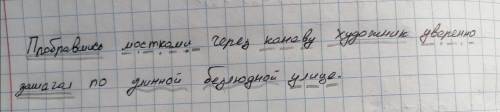 Пробравшись мостками через канаву художник уверенно
зашагал по длинной безлюдной улице.